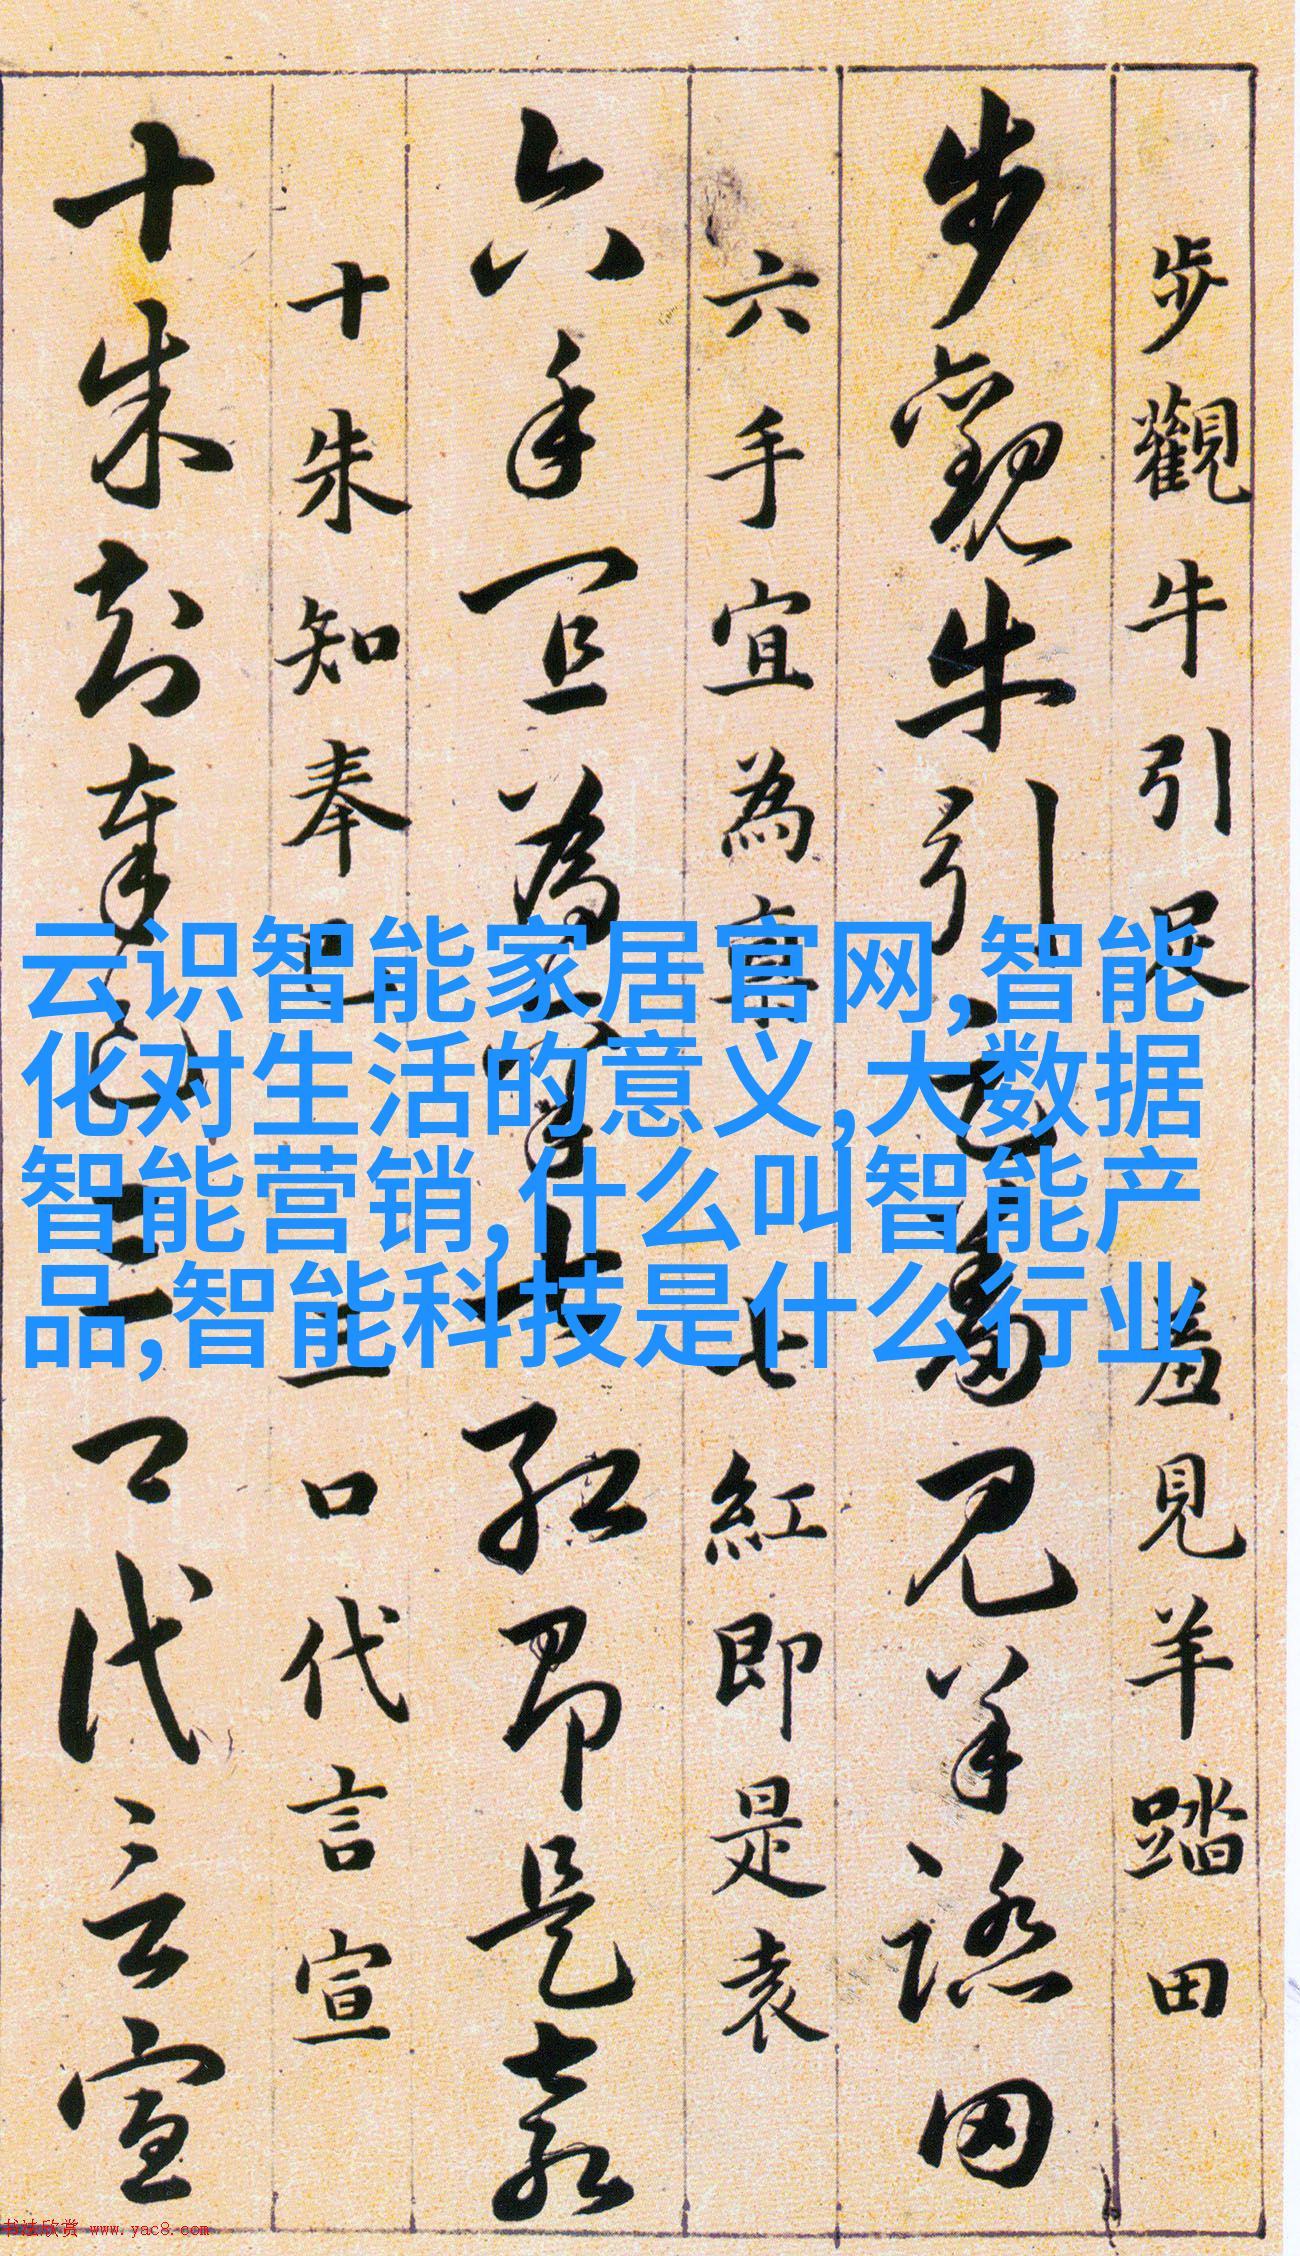 步觀牛引足 羞見羊踏田
步觀牛引足羞見羊踏田
六手宜為稟 七紅即是袁
六手宜為稟七紅即是袁
十朱知奉 三口代言宣
十朱知奉 三口代言宣
云识智能家居官网,智能
化对生活的意义,大数据
智能营销,什么叫智能产
品,智能科技是什么行业
书法欣赏 www.yac8.com